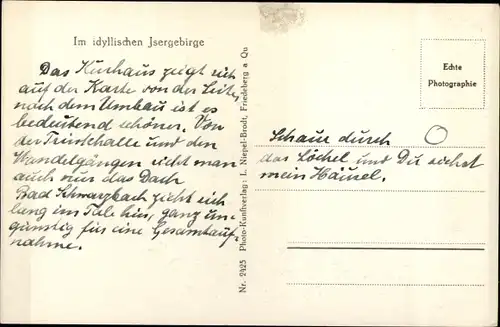 Im idyllischen Jsergebirge
Das Kurhaus zeigt sich
auf der Karte von der Seite,
nach dem Umbau ist es
bedeutend schöner. Von
der Trinkhalle und den
Wandelgängen sieht man
auch nur das Dach.
Bad Schwarzbach zieht sich
lang im Tale hin, ganz un-
günstig für eine Gesamtauf-
nahme.
Nr. 2425 Photo-Kunstverlag: L. Niepel-Brodt, Friedeberg a Qu
Echte
Photographie
Schau durch
das Löchel und Du siehst
mein Häusel.